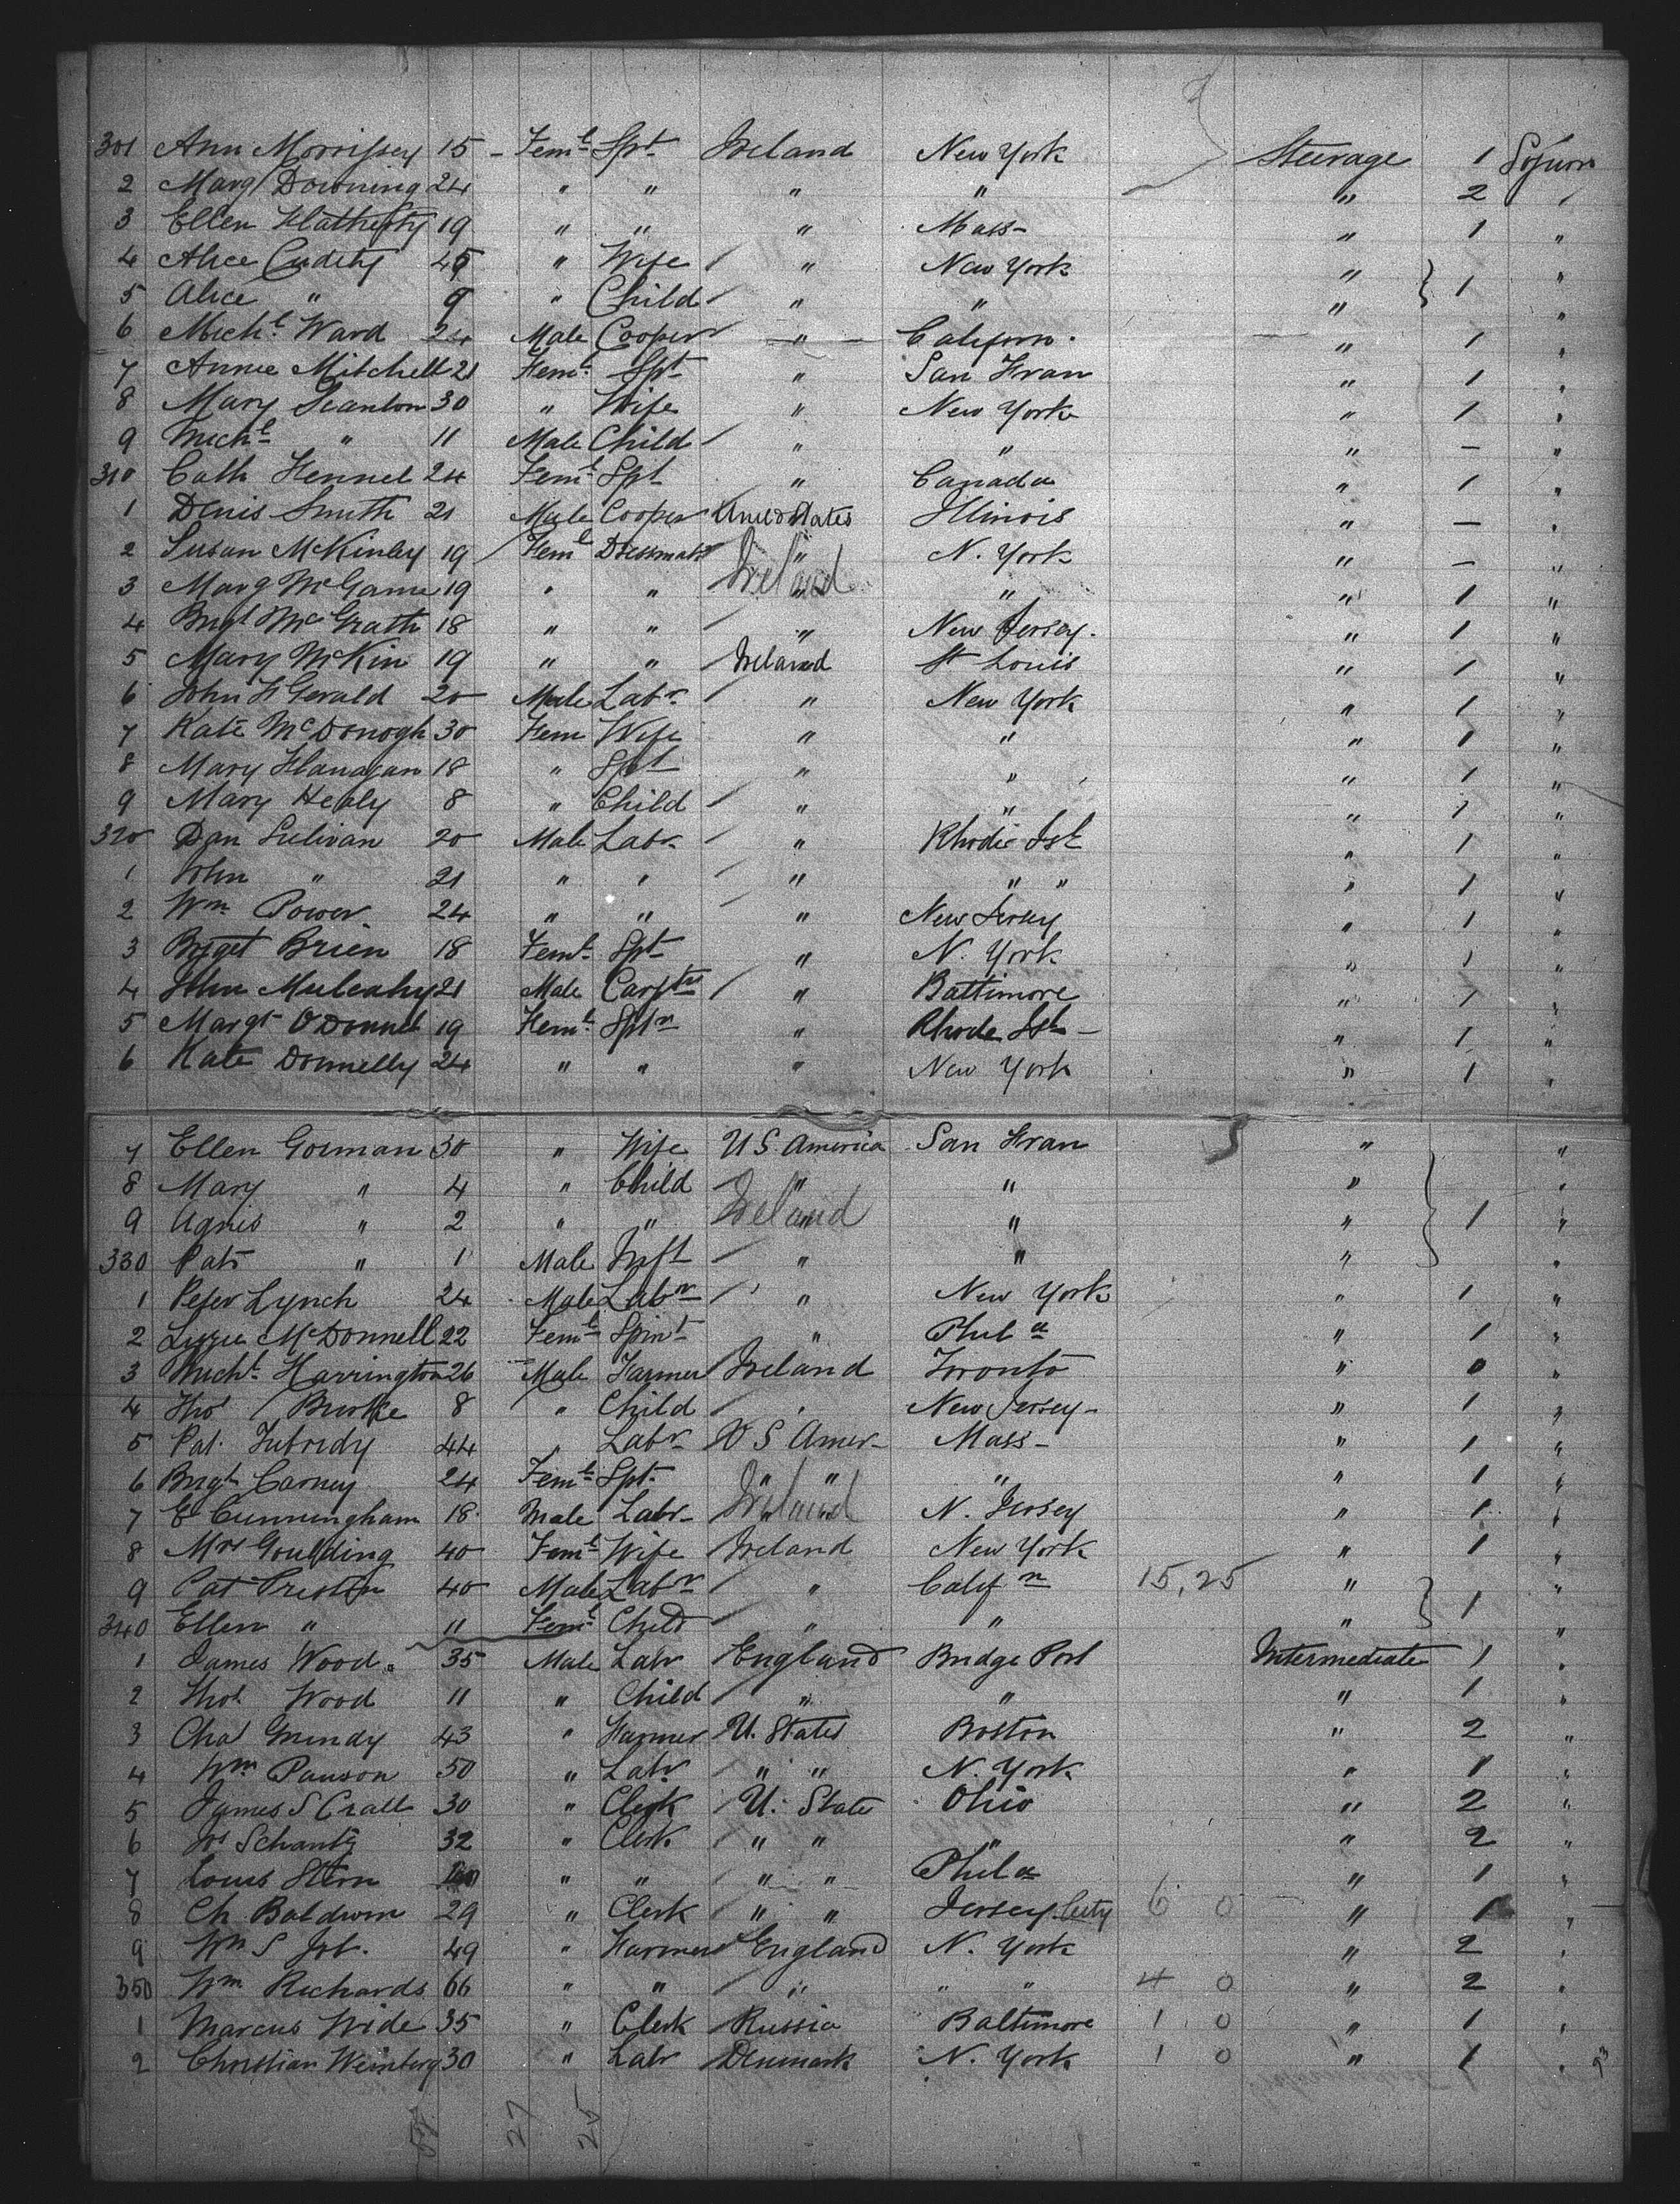 301 Ann Morrissey 15 Feml Spt Ireland New York Steerage 1 Sojurn
2 Marg Downing 24 " " " " " 2 "
3 Ellen Flatherty 19 " " " Mass- " 1 "
4 Alice Cudity " Wife " New York " 1 "
5 Alice " 9 " Child " " " "
6 Michl Ward 24 Male Cooper " Californ. " 1 "
7 Annie Mitchell 21 Feml Spt " San Fran " 1 "
8 Mary Scanlon 30 " Wife " New York " 1 "
9 Michl " 11 Male Child " " " - "
310 Cath Fennel 24 Feml Spt " Canada " 1 "
1 Denis Smith 21 Male Cooper United States Illinois " - "
2 Susan McKinley 19 Feml Dressmakr " N. York " - "
3 Marg 19 " " Ireland " " 1 "
4 Brigt McGrath 18 " " " New Jersey. " 1 "
5 Mary McKin 19 " " Ireland St Louis " 1 "
6 John FGerald 20 Male Labr " New York " 1 "
7 Kate McDonogh 30 Fem Wife " " " 1 "
8 Mary Flanagan 18 " Spt " " " 1 "
9 Mary Healy 8 " Child " " " 1 "
320 Dan Sulivan 20 Male Labr " Rhodie Isl " 1 "
1 John " 21 " " " " " " 1 "
2 Wm Power 24 " " " New Jersey " 1 "
3 Briget Brien 18 Feml Spt " N. York " 1 "
4 John Mulcahy 21 Male Carptr " Baltimore " 1 "
5 Margt O Donnel 19 Feml Sptr " Rhode Isl- " 1 "
6 Kate Donnelly 24 " " " New York " 1 "
7 Ellen Gorman 30 " Wife U S. America San Fran " "
8 Mary " 4 " Child " " " "
9 Agnis " 2 " " Ireland " " 1 "
330 Pat " 1 Male Inft " " " "
1 Peter Lynch 24 Male Labr " New York " 1 "
2 Lizzie McDonnell 22 Feml Spint " Phila " 1 "
3 Michl Harrington 26 Male Farmer Ireland Toronto " "
4 Thos Burke 8 " Child " New Jersey- " 1 "
5 Pat. Tubridy 44 " Labr U S Amer- Mass- " 1 "
6 Brigt Carney 24 Feml Spt " " " " 1 "
7 E Cunningham 18 Male Labr- Ireland N. Jersey " 1 "
8 Mrs Goulding 40 Feml Wife Ireland New York " 1 "
9 Pat Preston 40 Male Labr " Califn 15,25 " 1 "
340 Ellen " 11 Feml Child " " " "
1 James Wood 35 Male Labr England Bridge Port Intermediate 1 "
2 Thos Wood 11 " Child " " " 1 "
3 Chas Grundy 43 " Farmer U. States Boston " 2 "
4 Wm Pauson 50 " Labr " " N. York " 1 "
5 James S Crall 30 " Clerk U. State Ohio " 2 "
6 Js Schantz 32 " Clerk " " " " 2 "
7 Louis Stern " " " " Phila " 1 "
8 Ch Baldwin 29 " Clerk " " Jersey City 6 0 " 1 "
9 Wm S 49 " Farmer England N. York " 2 "
350 Wm Richards 66 " " " " " 4 0 " 2 "
1 Marcus Wide 35 " Clerk Russia Baltimore 1 0 " 1 "
2 Christian Weinberg 30 " Labr Denmark N. York 1 0 " 1 "
27 25